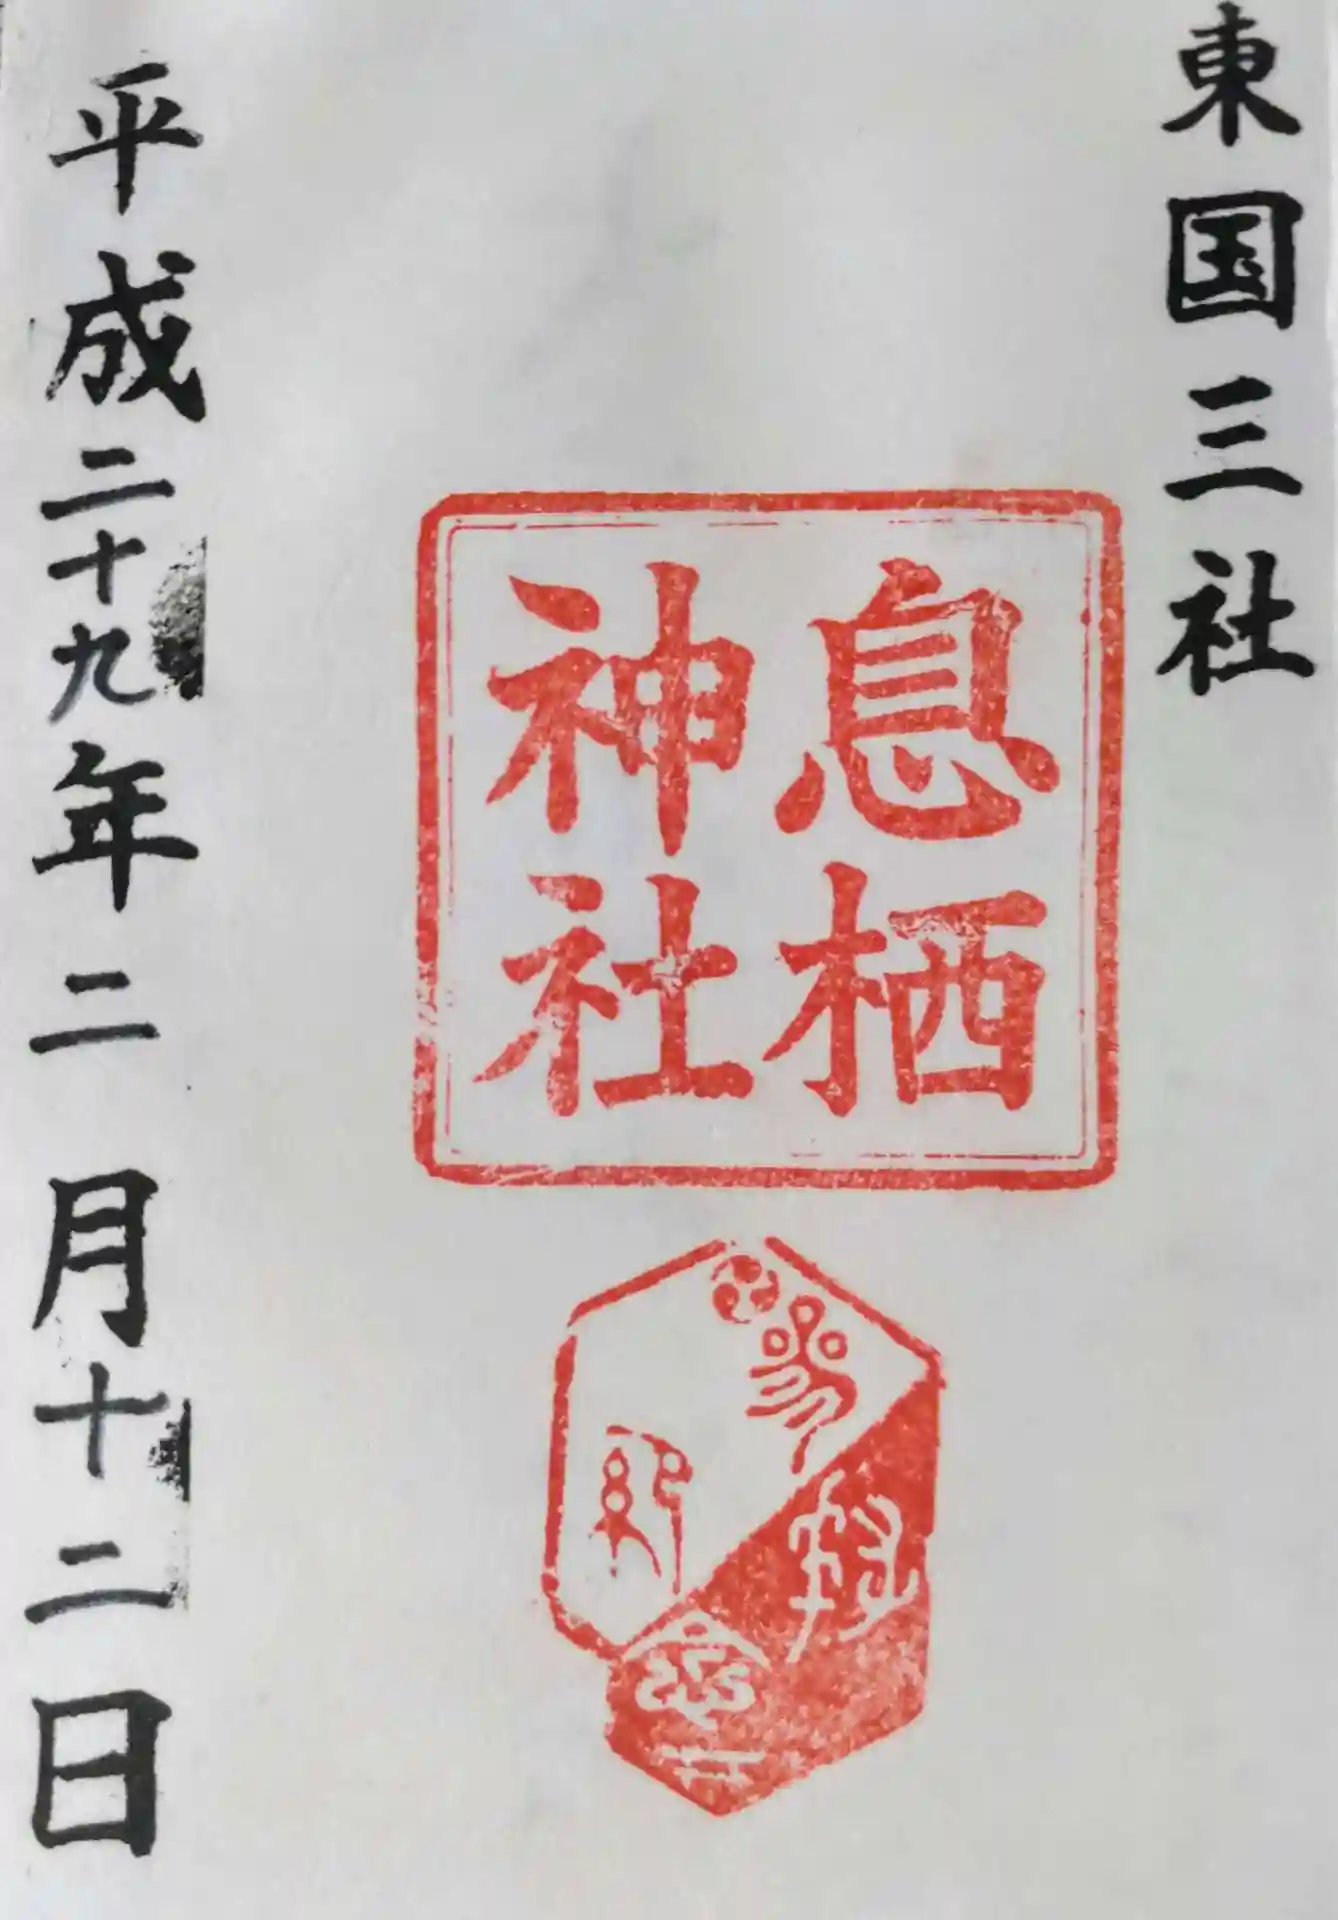 東国三社
息栖
神社
平成二十九年二月十二日